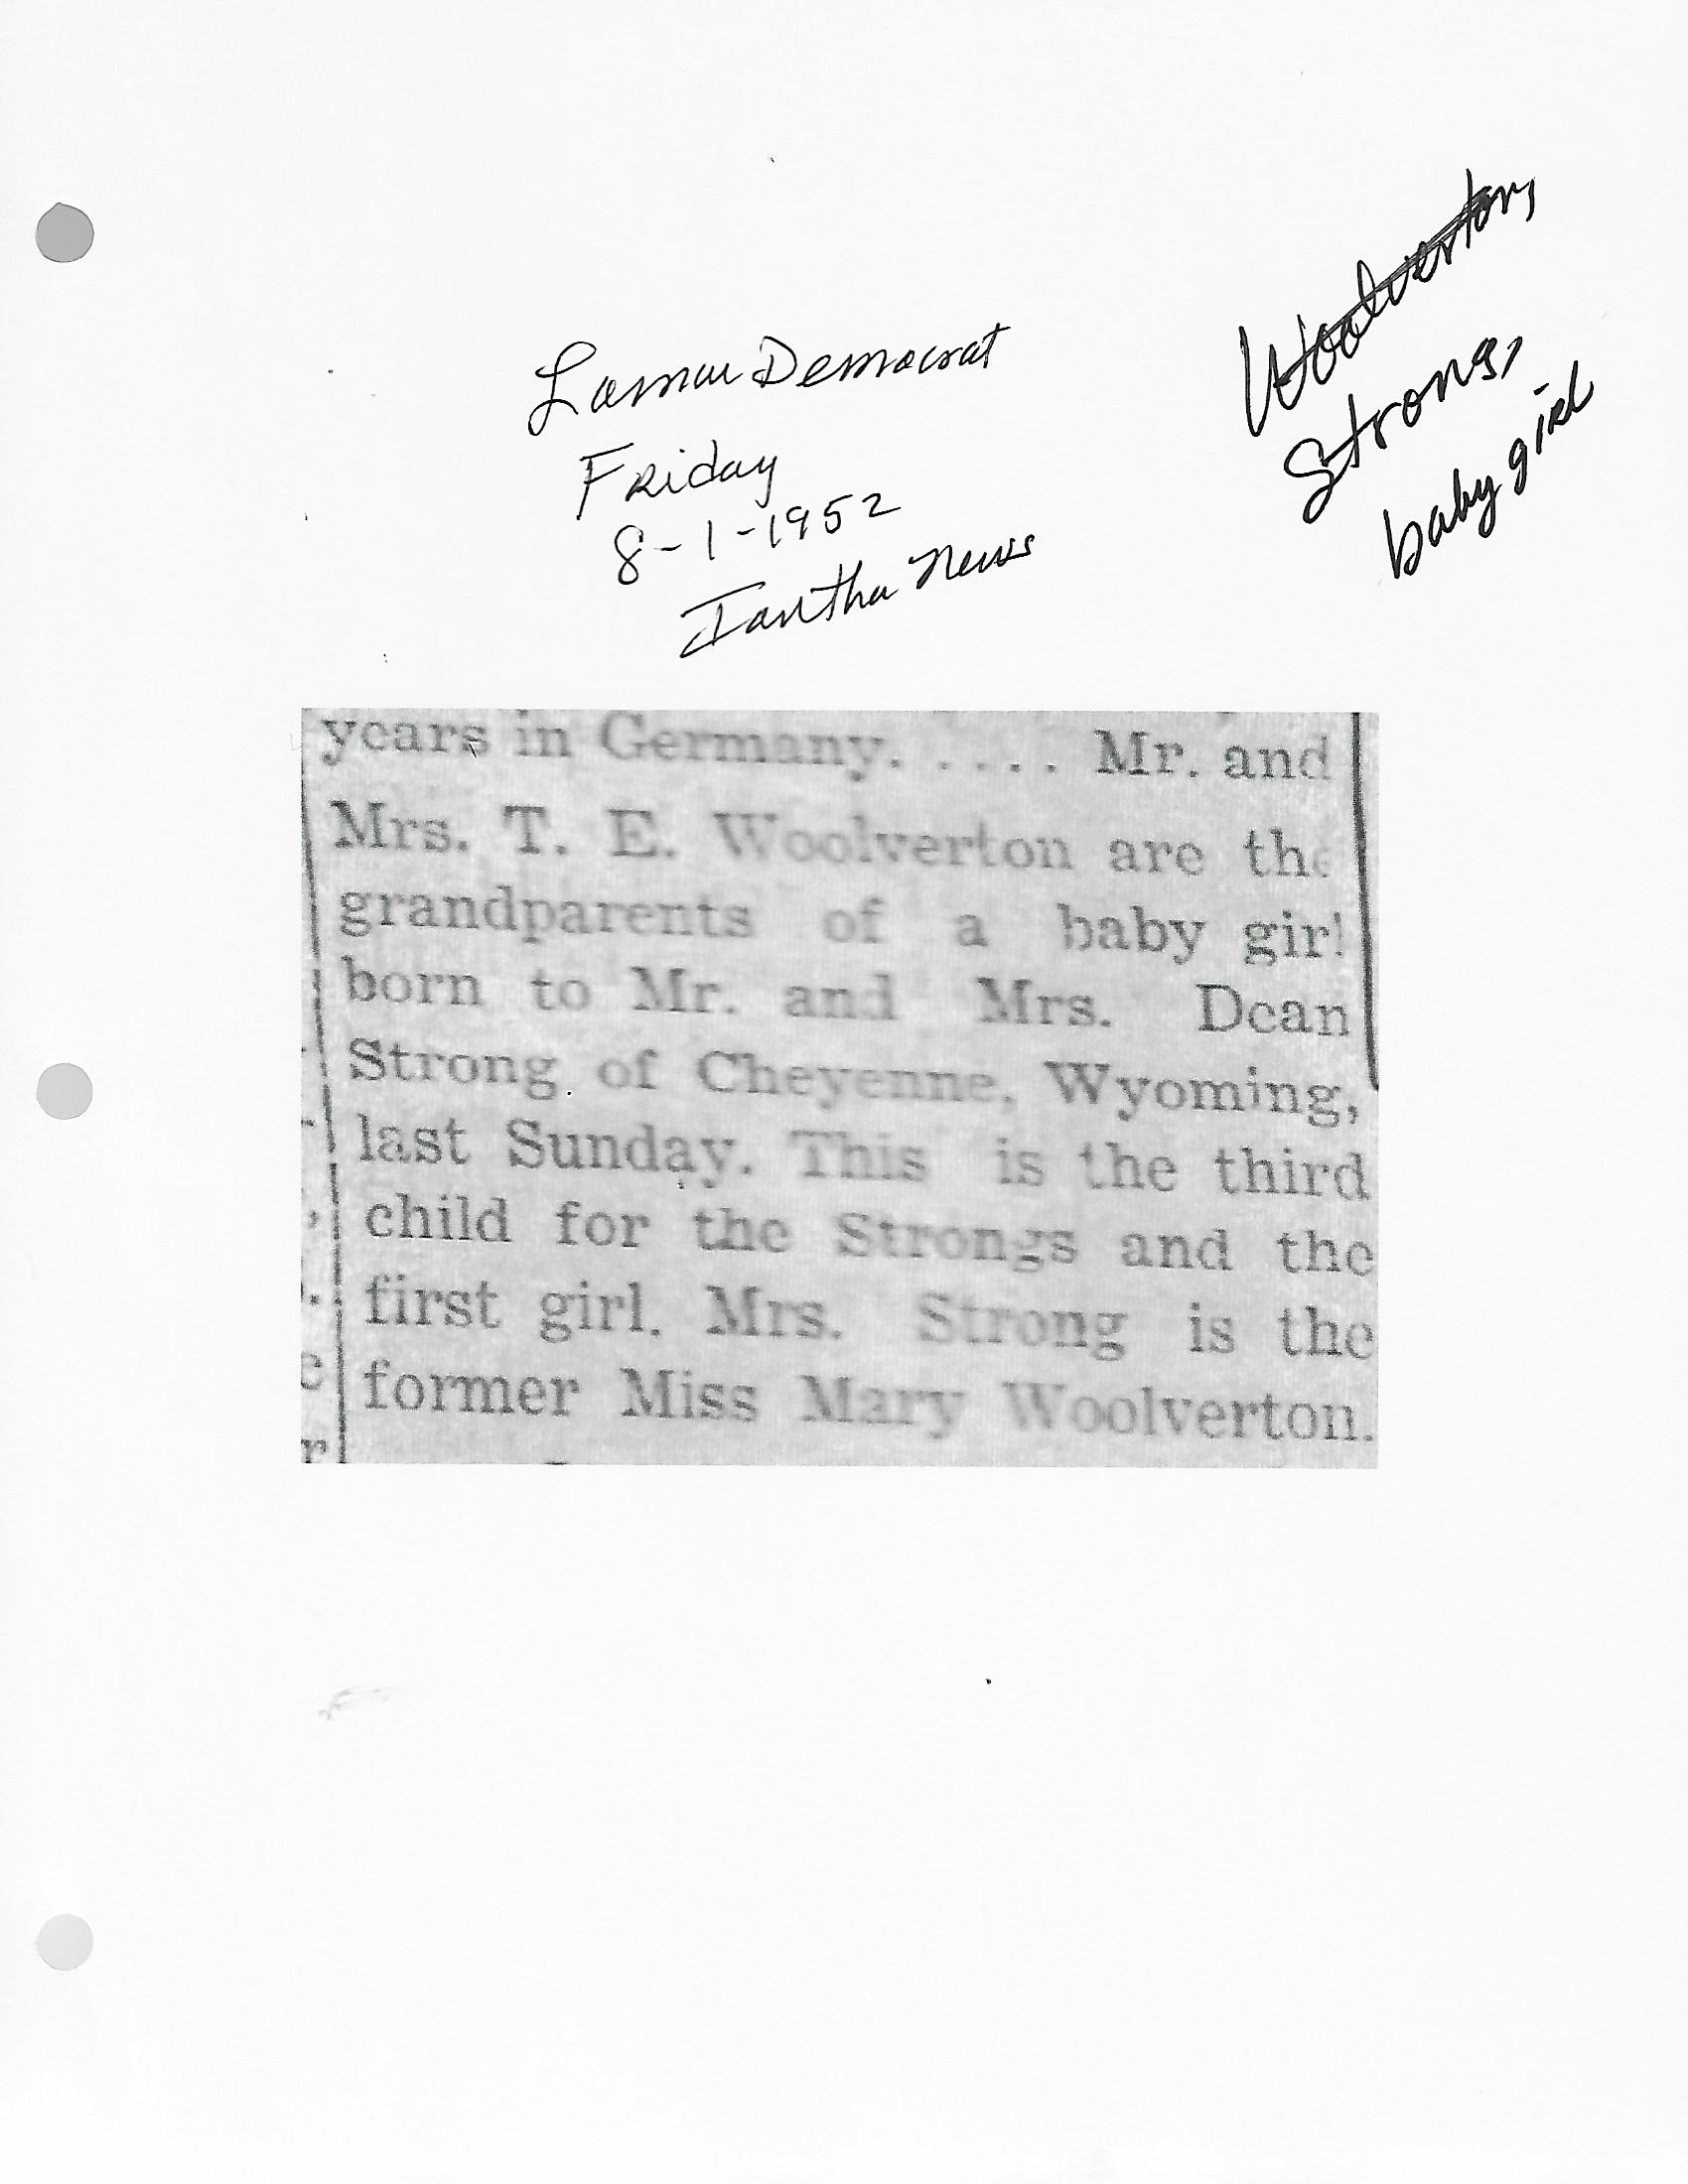 Woolverton,
Strong,
baby girl
Lamar Democrat
Friday
8-1-1952
Iantha News
years in Germany. .... Mr. and
Mrs. T. E. Woolverton are the
grandparents of a baby girl
born to Mr. and Mrs. Dean
Strong of Cheyenne, Wyoming,
last Sunday. This is the third
child for the Strongs and the
first girl. Mrs. Strong is the
former Miss Mary Woolverton.